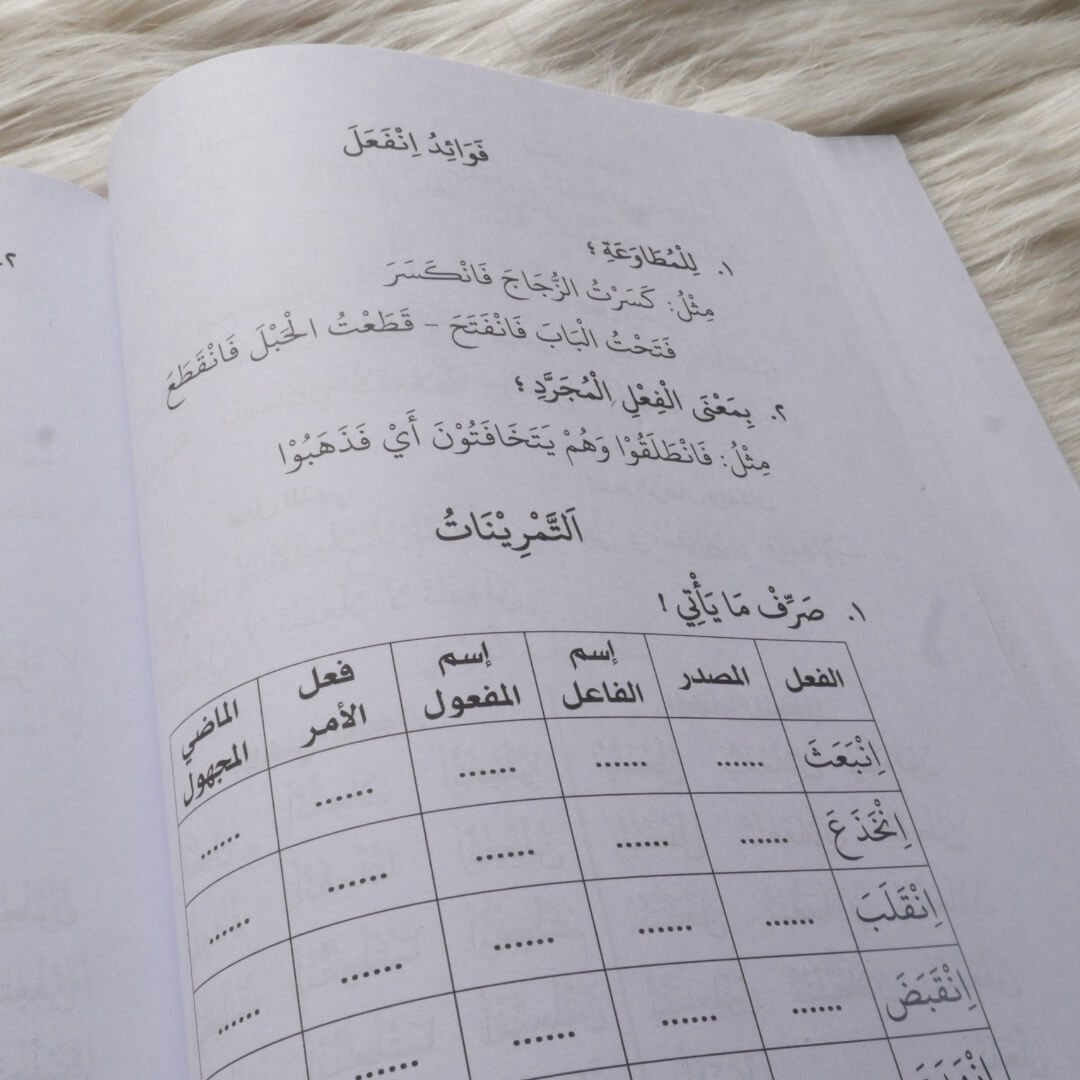 فَوَائِدُ اِنْفَعَلَ
١. لِلْمُطَاوَعَةِ ؛
مِثْلُ: كَسَرْتُ الزُّجَاجَ فَانْكَسَرَ
فَتَحْتُ الْبَابَ فَانْفَتَحَ – قَطَعْتُ الْحَبْلَ فَانْقَطَعَ
٢. بِمَعْنَى الْفِعْلِ الْمُجَرَّدِ ؛
مِثْلُ: فَانْطَلَقُوْا وَهُمْ يَتَخَافَتُوْنَ أَيْ فَذَهَبُوْا
اَلتَّمْرِيْنَاتُ
١. صَرِّفْ مَا يَأْتِي !
الفعل المصدر إسم الفاعل إسم المفعول فعل الأمر الماضي المجهول
اِنْبَعَثَ ...... ...... ...... ...... ......
اِنْخَذَعَ ...... ...... ...... ...... ......
اِنْقَلَبَ ...... ...... ...... ...... ......
اِنْقَبَضَ ...... ...... ...... ......